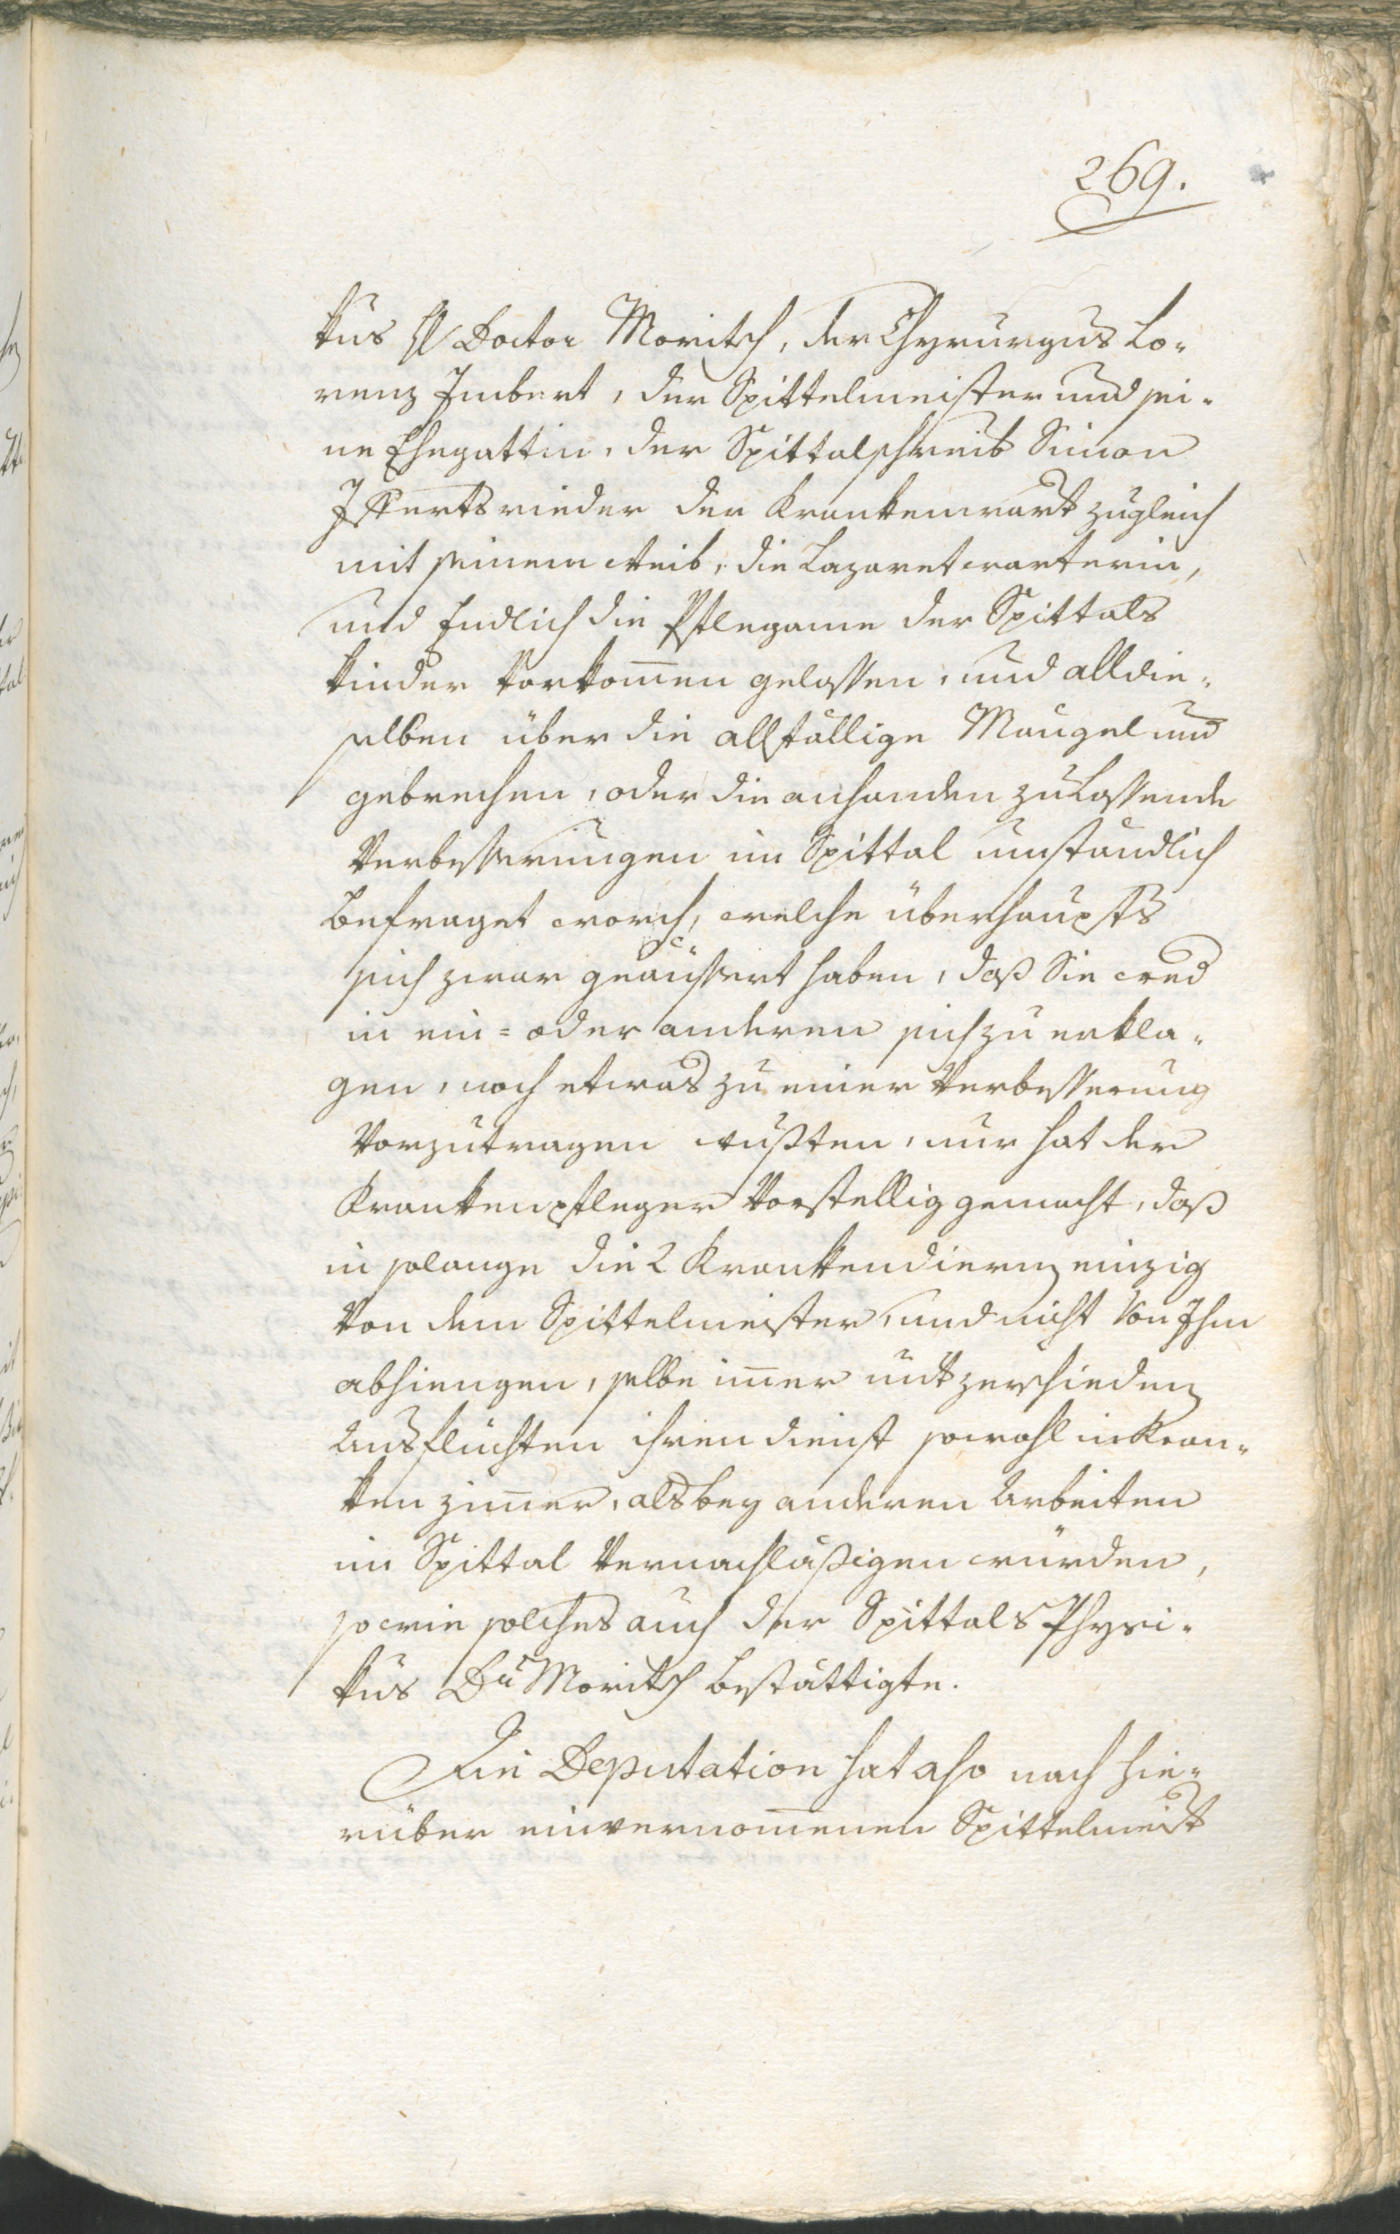 269.
kus H Doctor Moritsch, der Chyrurgus Lo-
renz Imbert, der Spittelmeister und sei-
ne Ehegattin, der Spittalschreib Simon
der Krankenwart zugleich
mit seinem Weib, die Lazaretwarterin,
und Endlich die Pflegame der Spittals
kinder vorkom̅en gelassen, und alldie-
selben über die allfällige Mängel und
gebrechen, oder die anhanden zulassende
Verbesserungen im Spittal umständlich
befraget word, welche überhaupts
sich zwar geäussert haben, daß Sie wed
in ein= oder anderen sich zu erkla-
gen, noch etwas zu einer Verbesserung
Vorzutragen wußten, nur hat der
Krankenpfleger Vorstellig gemacht, daß
in solange die 2 Krankendiern einzig
Von dem Spittelmeister, und nicht Von Ihm
abhiengen, selbe im̅er mit zerschieden
Ausflüchten ihren dienst sowohl in Kran-
kenzim̅er, als bey anderen Arbeiten
im Spittal Vernachläßigen würden,
so wie solches auch der Spittals Physi-
kus Dr Moritsch bestättigte.
Eine Deputation hat also nach hie-
rüber einvernom̅enen Spittelmeist